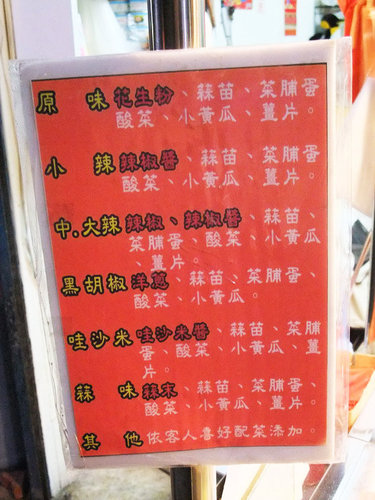 原　味花生粉、蒜苗、菜脯蛋
酸菜、小黃瓜、薑片。
小　辣辣椒醬、蒜苗、菜脯蛋
酸菜、小黃瓜、薑片。
中.大辣辣椒、辣椒醬、蒜苗、
菜脯蛋、酸菜、小黃瓜
、薑片。
黑胡椒洋蔥、蒜苗、菜脯蛋、
酸菜、小黃瓜。
哇沙米哇沙米醬、蒜苗、菜脯
蛋、酸菜、小黃瓜、薑
片。
蒜　味蒜末、蒜苗、菜脯蛋、
酸菜、小黃瓜、薑片。
其　他依客人喜好配菜添加。